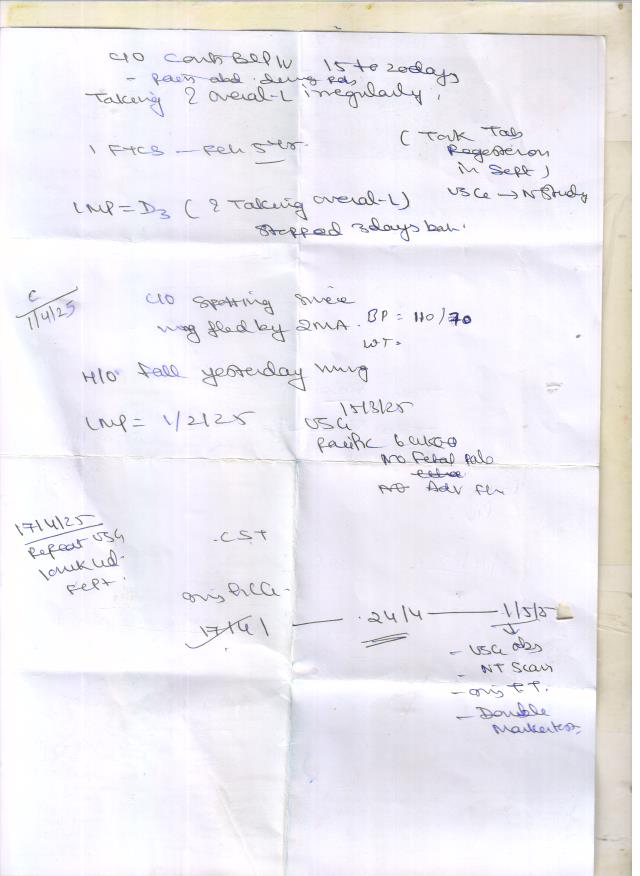 C/O Cont. BLP IV 15 to 20 days
- pain abd. during pds
Taking ? overal-L irregularly.
1 FTCS - Feh 5 yrs.
( Took Tab
Regesteron
in Sept )
USG → N Study
LMP = D3 ( ? Taking overal-L)
stopped 3 days bak.
C
1/4/25
C/O Spotting since
mng flled by 2MA.
BP = 110/70
WT =
H/O Fall yesterday mng
LMP = 1/2/25
15/3/25
USG
6 wks
No Fetal Pole
Adv
17/4/25
Repeat USG
10 wk
CST
17/4 — 24/4 — 1/5/5
- USG obs
- NT Scan
- Inj T.T.
- Double
Marker test